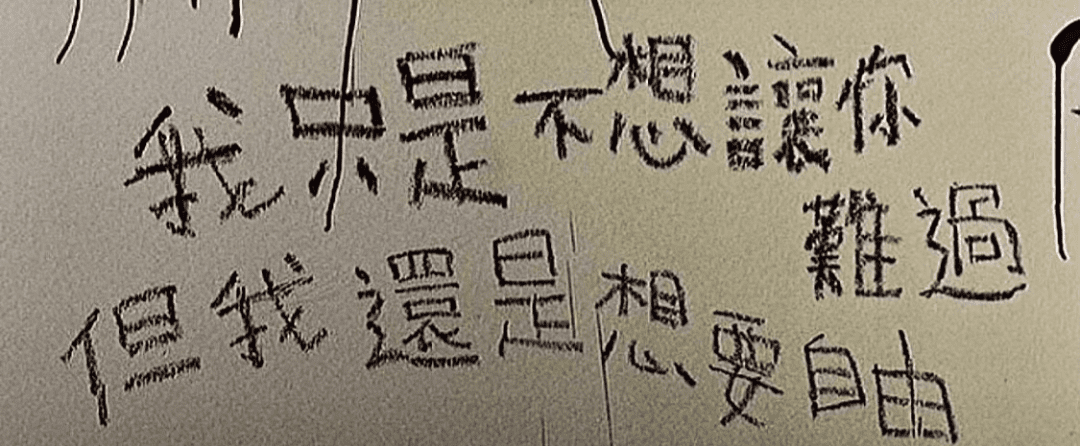 我只是不想讓你
難過
但我還是想要自由